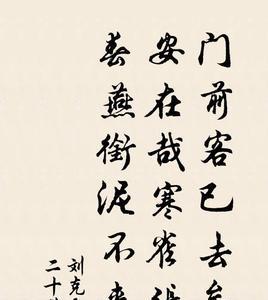 门前客已去
安在哉寒雀
春燕衔泥不
刘克
二十